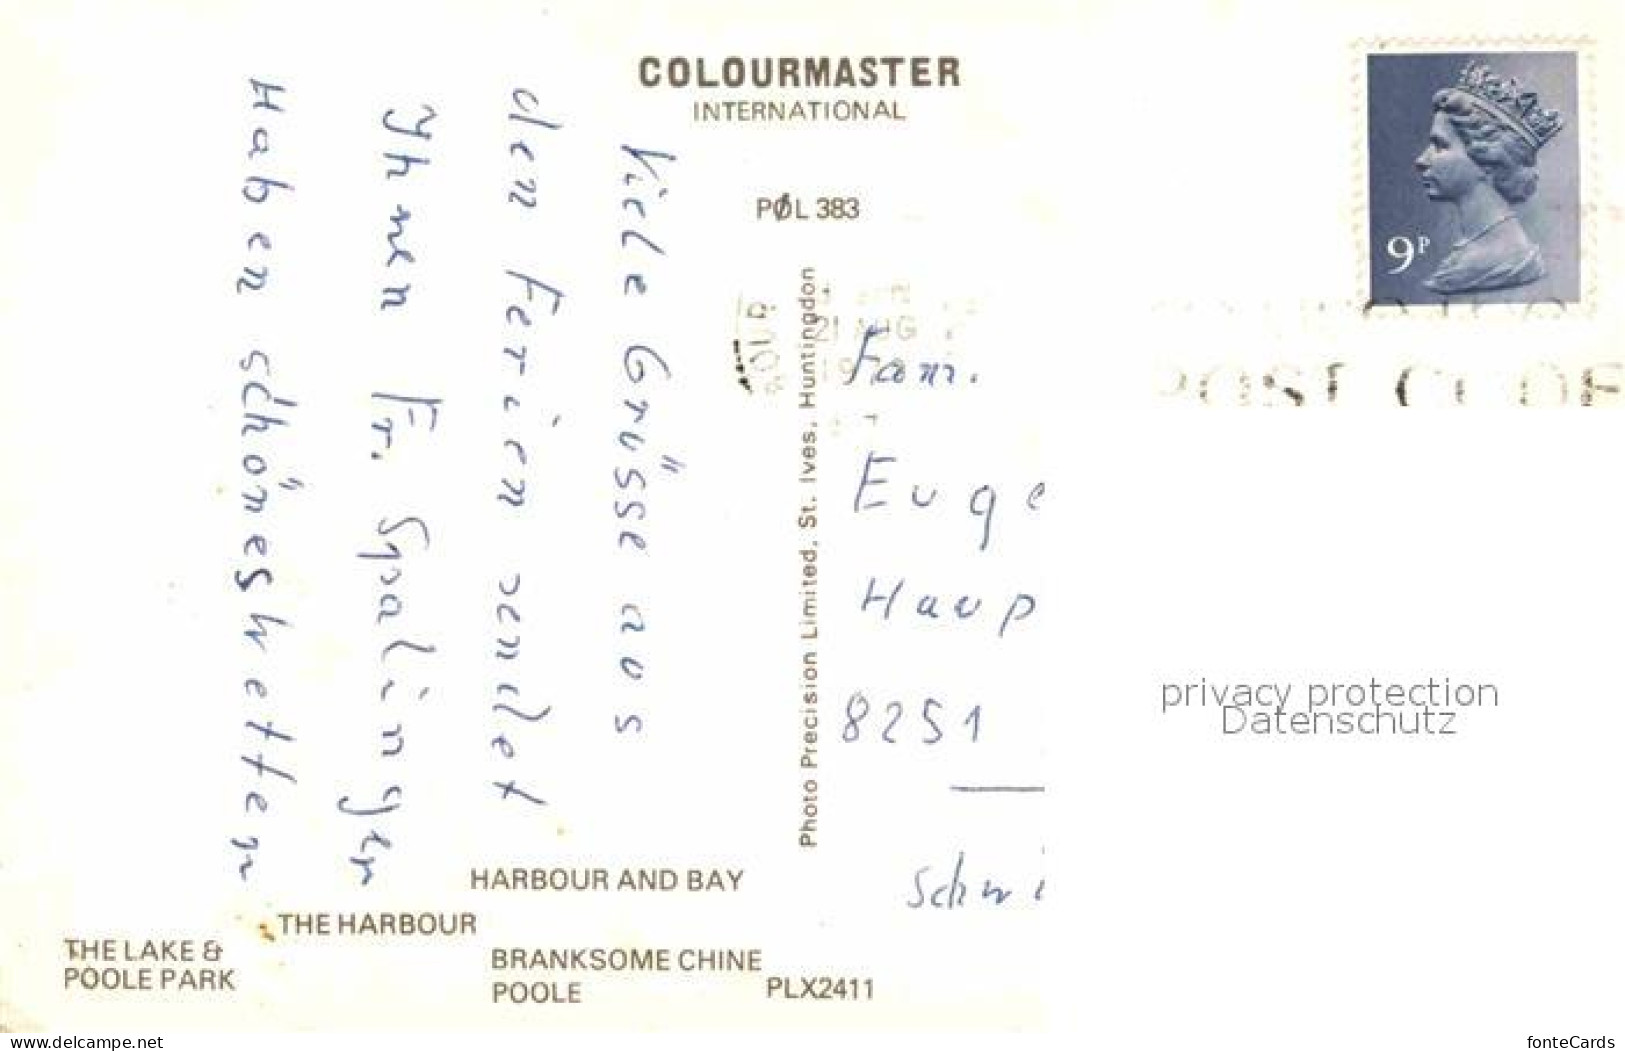 COLOURMASTER
INTERNATIONAL
PØL 383
9P
21 AUG
Viele Grüsse aus
den Ferien sendet
Ihnen Fr. Spalinger
Haben schönes Wetter
Photo Precision Limited, St. Ives, Huntingdon
Fam.
Euge
Haup
8251
Schwi
privacy protection
Datenschutz
HARBOUR AND BAY
THE HARBOUR
THE LAKE &
POOLE PARK
BRANKSOME CHINE
POOLE
PLX2411
www.delcampe.net
fonteCards